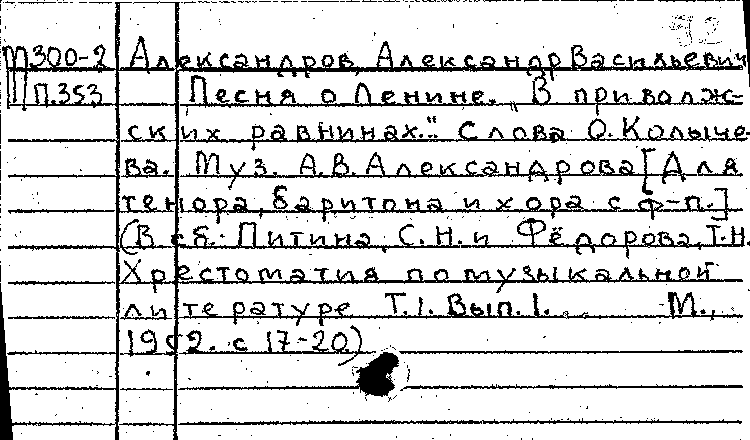 92
М300-2 Александров, Александр Васильевич
П.353 Песня о Ленине. "В приволж-
ских равнинах." Слова О. Колыче-
ва. Муз. А.В. Александрова [Для
тенора, баритона и хора с ф-п.]
(В сб.: Питина, С.Н. и Фёдорова, Т.Н.
Хрестоматия по музыкальной
литературе Т.1. Вып.1... М.,
с 17-20)